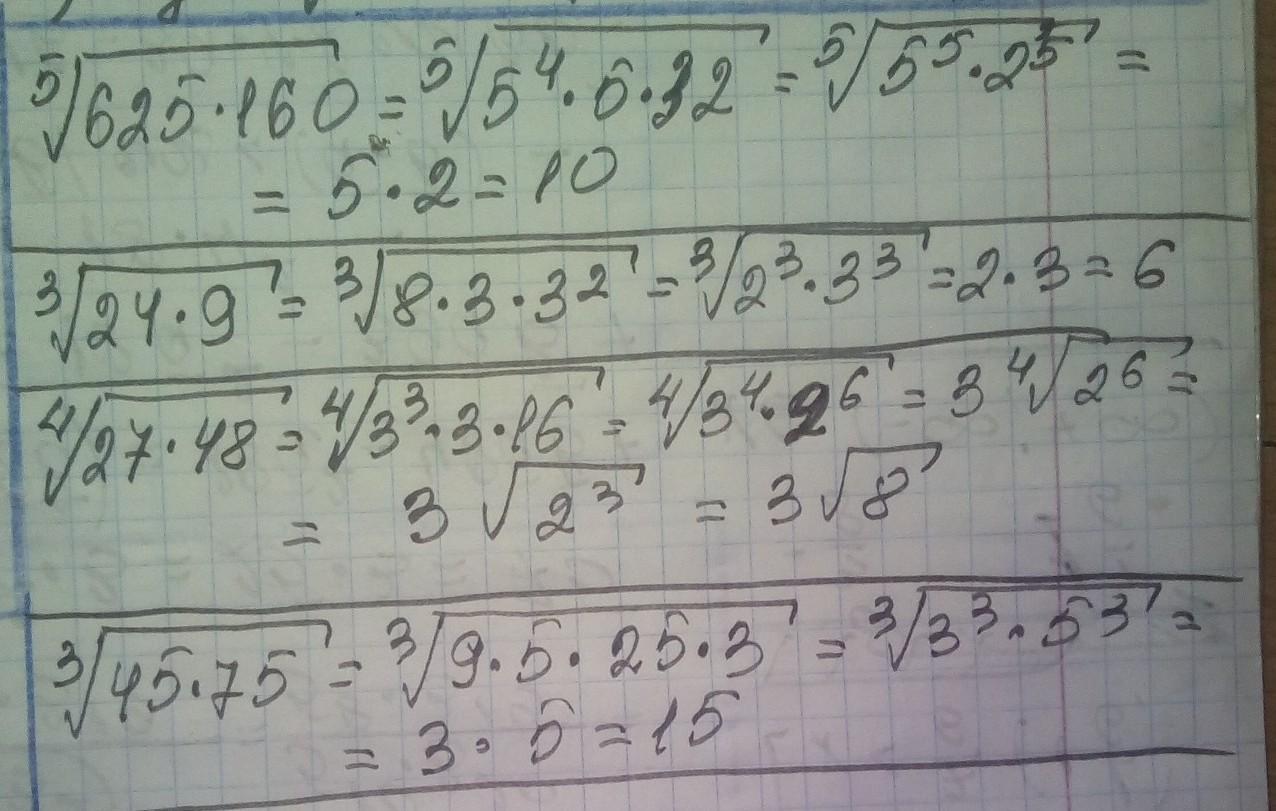 ⁵√625·160 = ⁵√5⁴·5·32 = ⁵√5⁵·2⁵ =
= 5·2 = 10
³√24·9 = ³√8·3·3² = ³√2³·3³ = 2·3 = 6
⁴√27·48 = ⁴√3³·3·16 = ⁴√3⁴·2⁶ = 3 ⁴√2⁶ =
= 3 √2³ = 3√8
³√45·75 = ³√9·5·25·3 = ³√3³·5³ =
= 3·5 = 15